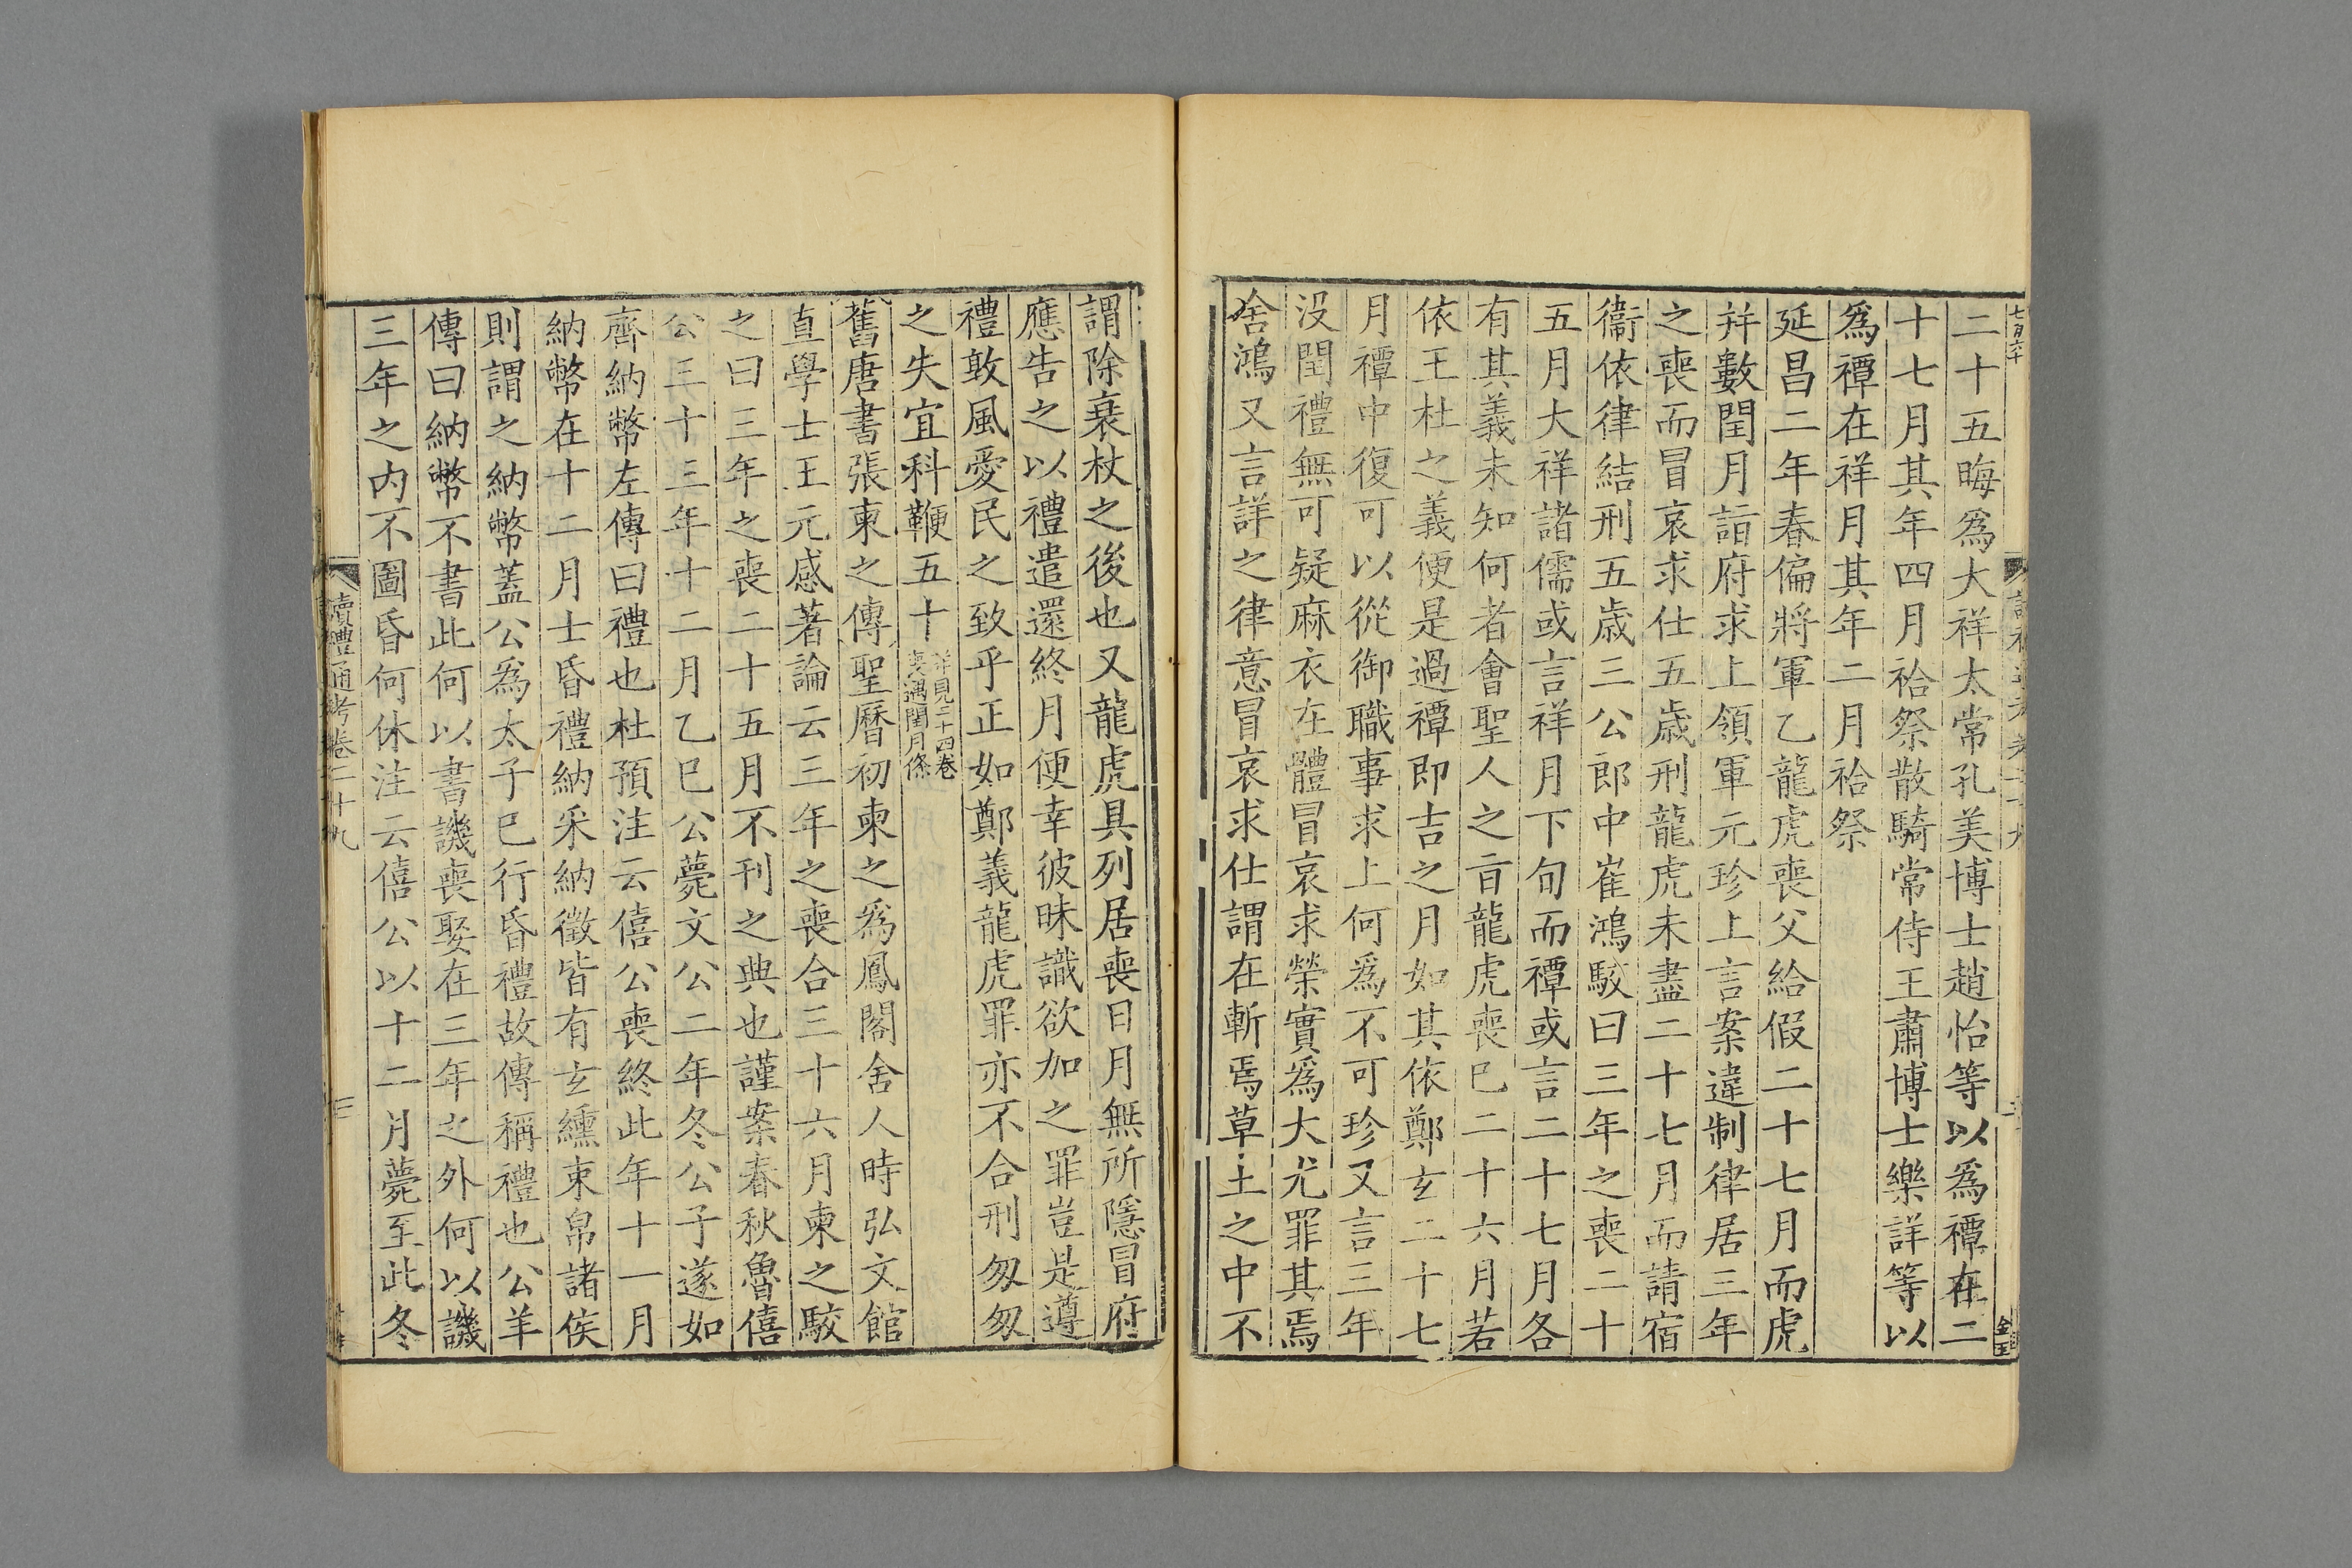 二十五晦爲大祥太常孔美博士趙怡等以爲禫在二
十七月其年四月祫祭散騎常侍王肅博士樂詳等以
爲禫在祥月其年二月祫祭
延昌二年春偏將軍乙龍虎喪父給假二十七月而虎
并數閏月詣府求上領軍元珍上言案違制律居三年
之喪而冒哀求仕五歲刑龍虎未盡二十七月而請宿
衞依律結刑五歲三公郎中崔鴻駁曰三年之喪二十
五月大祥諸儒或言祥月下旬而禫或言二十七月各
有其義未知何者會聖人之㫖龍虎喪已二十六月若
依王杜之義便是過禫即吉之月如其依鄭玄二十七
月禫中復可以從御職事求上何爲不可珍又言三年
没閏禮無可疑麻衣在體冒哀求榮實爲大尤罪其焉
舍鴻又言詳之律意冒哀求仕謂在斬焉草土之中不
謂除衰杖之後也又龍虎具列居喪日月無所隱冒府
應告之以禮遣還終月便幸彼昧識欲加之罪豈是遵
禮敦風愛民之致乎正如鄭義龍虎罪亦不合刑匆匆
之失宜科鞭五十
詳見二十四卷
喪遇閏月條
舊唐書張柬之傳聖曆初柬之爲鳳閣舍人時弘文館
直學士王元感著論云三年之喪合三十六月柬之駮
之曰三年之喪二十五月不刊之典也謹案春秋魯僖
公三十三年十二月乙巳公薨文公二年冬公子遂如
齊納幣左傳曰禮也杜預注云僖公喪終此年十一月
納幣在十二月士昏禮納采納徵皆有玄纁束帛諸侯
則謂之納幣蓋公爲太子已行昏禮故傳稱禮也公羊
傳曰納幣不書此何以書譏喪娶在三年之外何以譏
三年之内不圖昏何休注云僖公以十二月薨至此冬
讀禮通考卷二十九
三